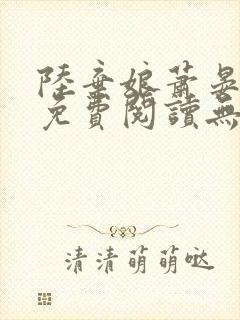 陸棄娘蕭晏
免費閱讀無
清清萌萌噠